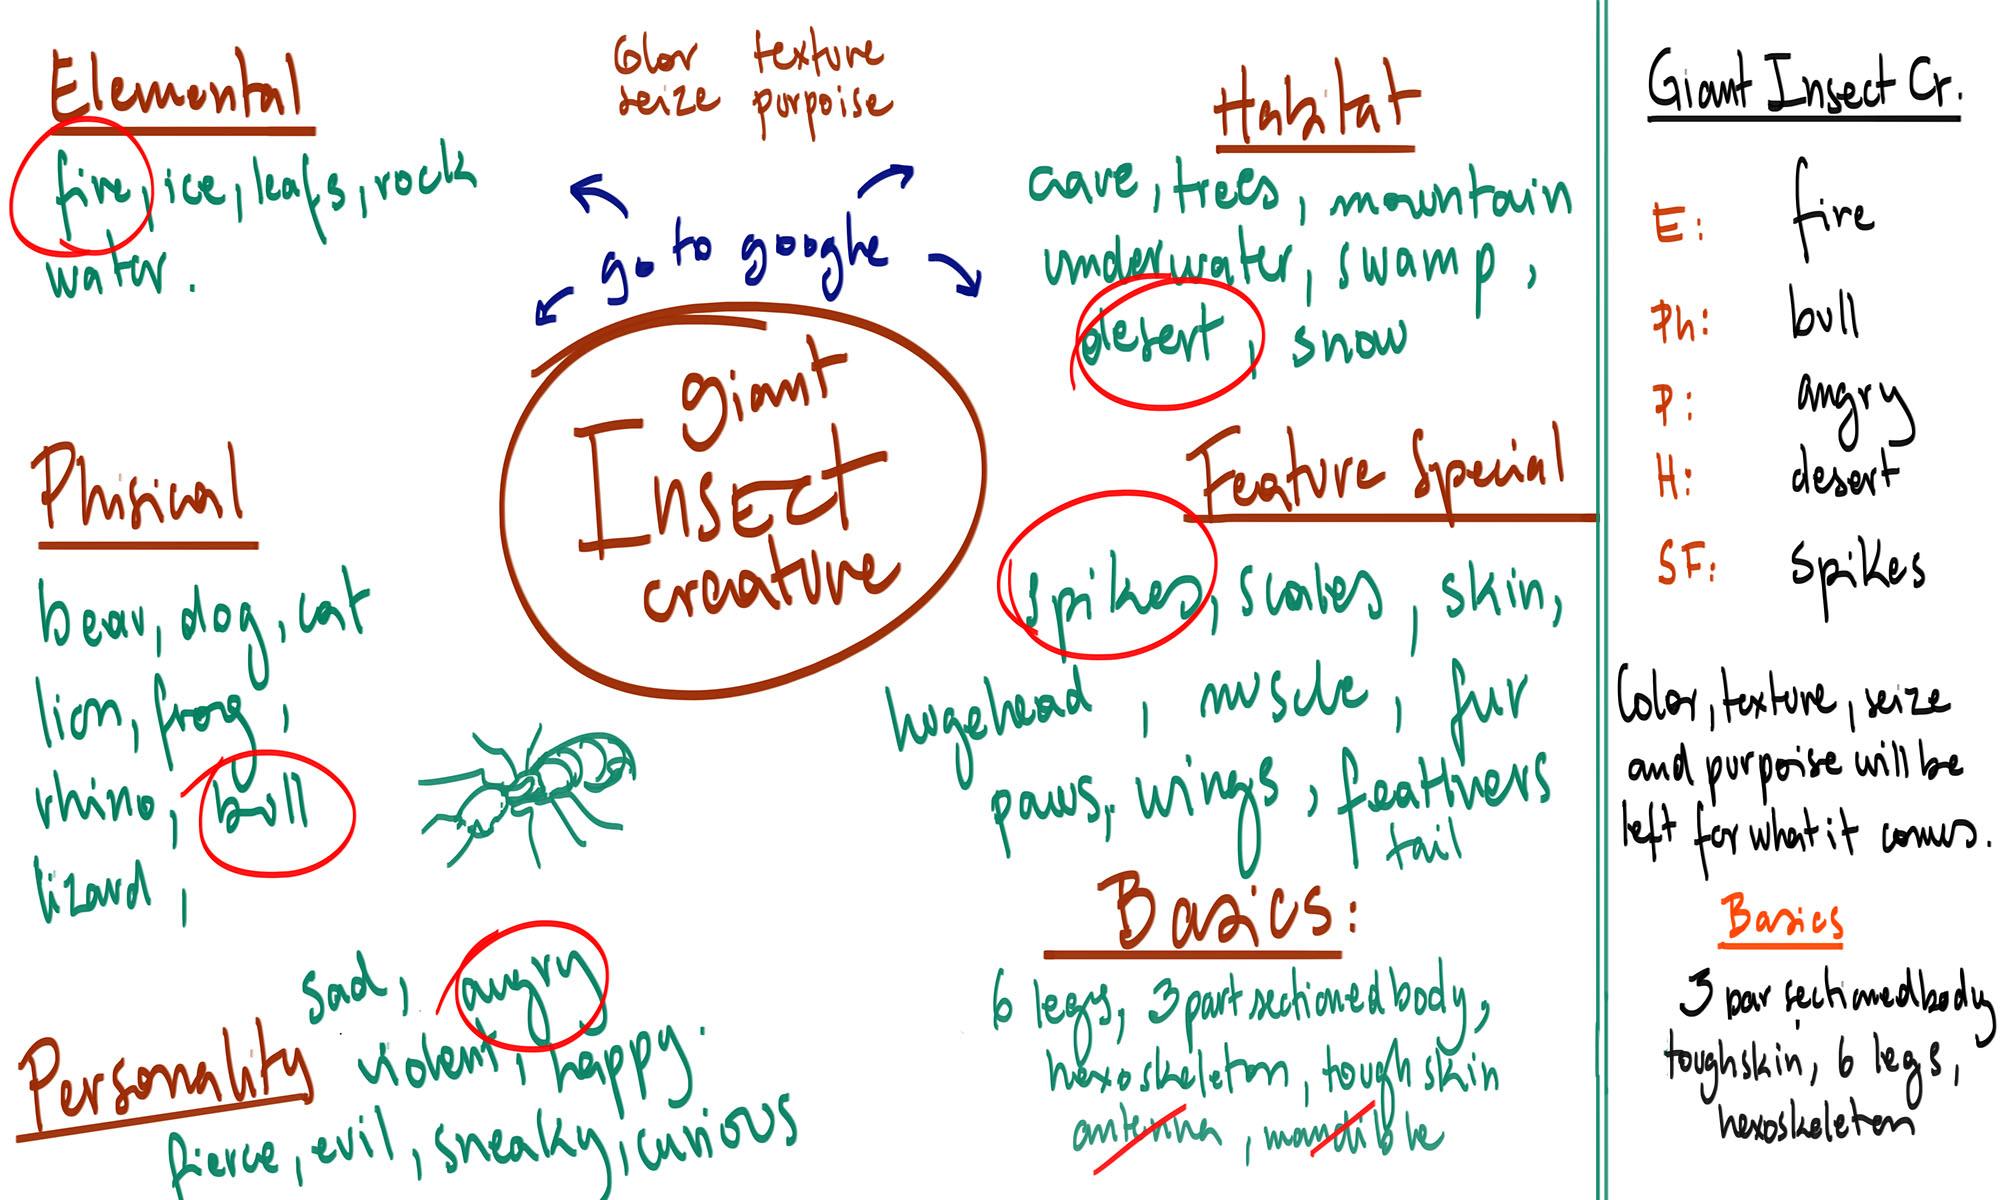 Elemental
fire, ice, leafs, rock
water.
Color texture
seize purpoise
go to google
giant
Insect
creature
Habitat
cave, trees, mountain
underwater, swamp,
desert, snow
Phisical
bear, dog, cat
lion, frog,
rhino, bull
lizard,
Feature Special
spikes, scales, skin,
hugehead, muscle, fur
paws, wings, feathers
tail
Personality
sad, angry
violent, happy.
fierce, evil, sneaky, curious
Basics:
6 legs, 3 part sectioned body,
hexoskeleton, tough skin
antenna, mandible
Giant Insect Cr.
E: fire
Ph: bull
P: angry
H: desert
SF: spikes
Color, texture, seize
and purpoise will be
left for what it comes.
Basics
3 par sectioned body
tough skin, 6 legs,
hexoskeleton